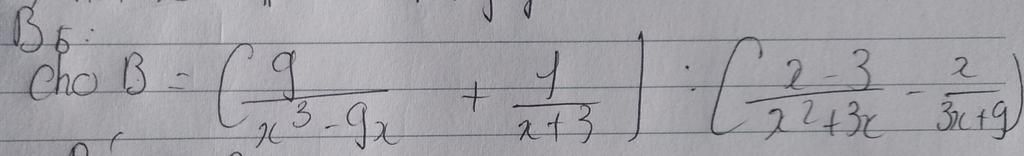 B5:
Cho B = (9/(x³-9x) + 1/(x+3)) : ((x-3)/(x²+3x) - x/(3x+9))